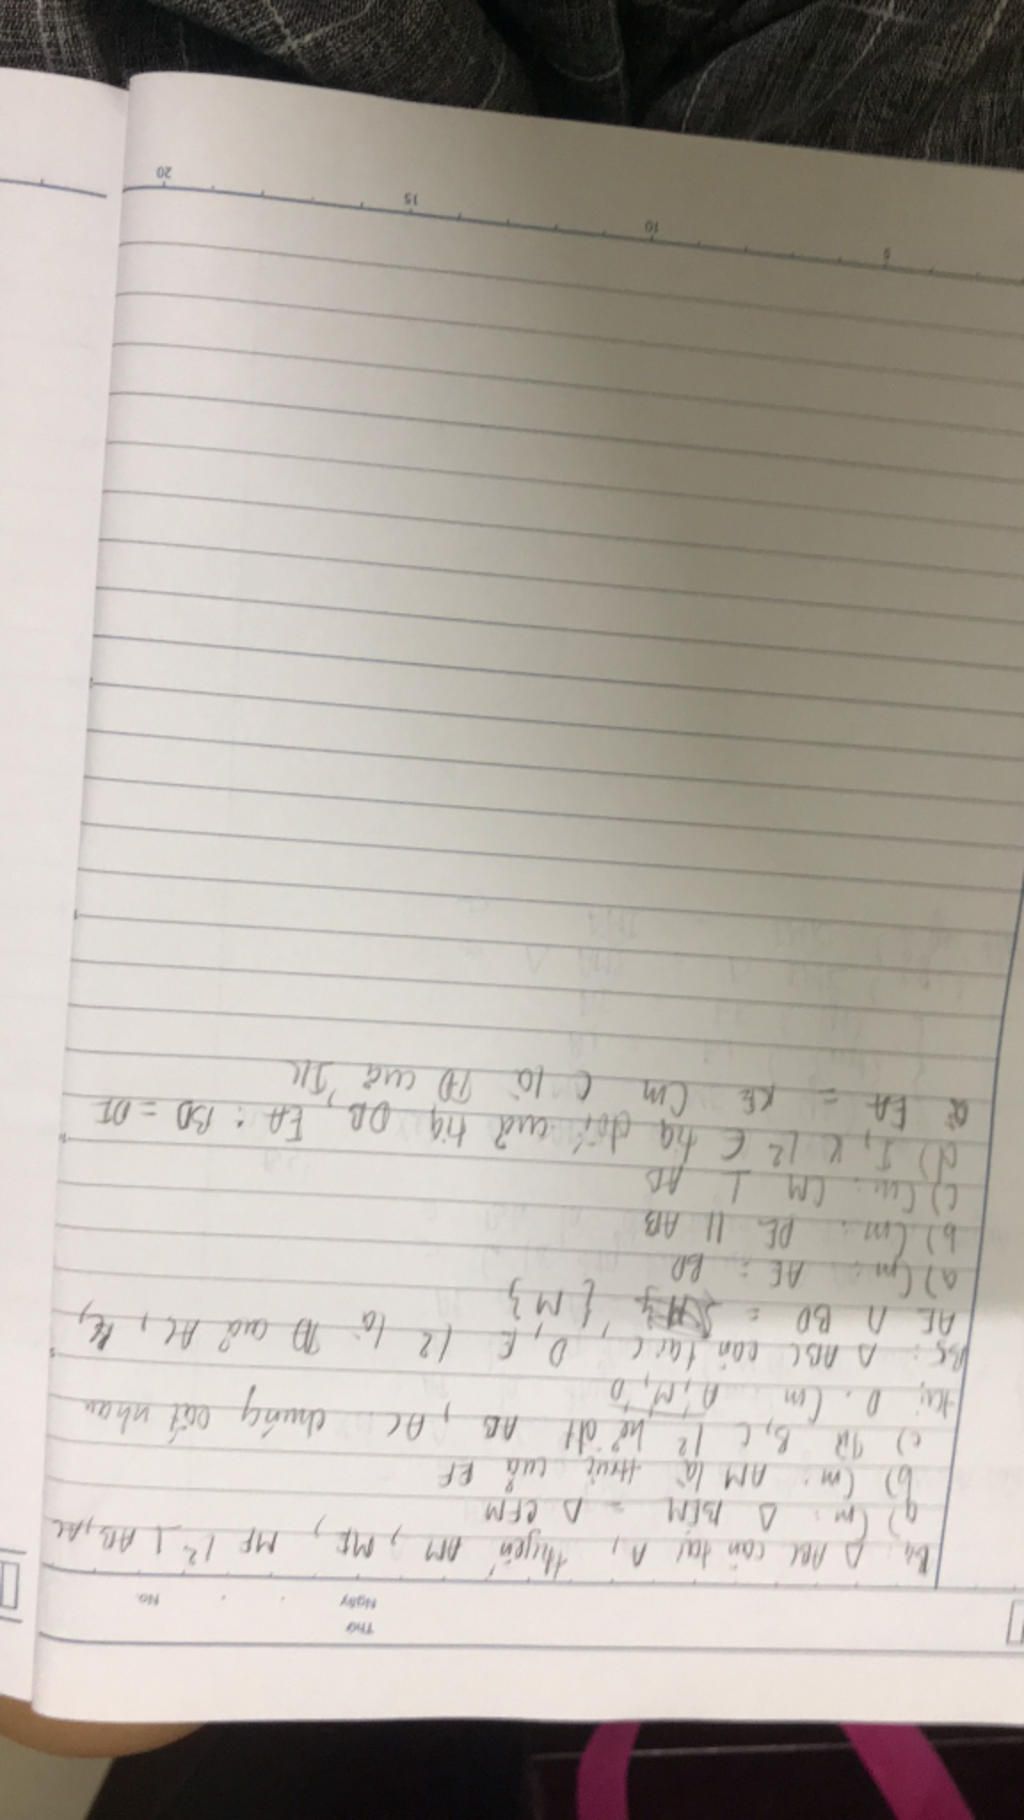 Thứ
Ngày No.
B4: Δ ABC cân tại A, tuyến AM, ME, MF l2 ⊥ AB, AC
a) Cm: Δ BEM = Δ CFM
b) Cm: AM là trực của EF
c) Từ B, C l2 kẻ đt AB, AC chúng cắt nhau
tại D. Cm A, M, D
B5: Δ ABC cân tại C, D, E l2 là TĐ của AC, BC,
AE ∩ BD = {M}
a) Cm: AE = BD
b) Cm: DE // AB
c) Cm: CM ⊥ AB
d) I, K l2 ∈ tia đối của tia DB, EA: BD = DI
EA = KE Cm C là TĐ của IK
5
10
15
20